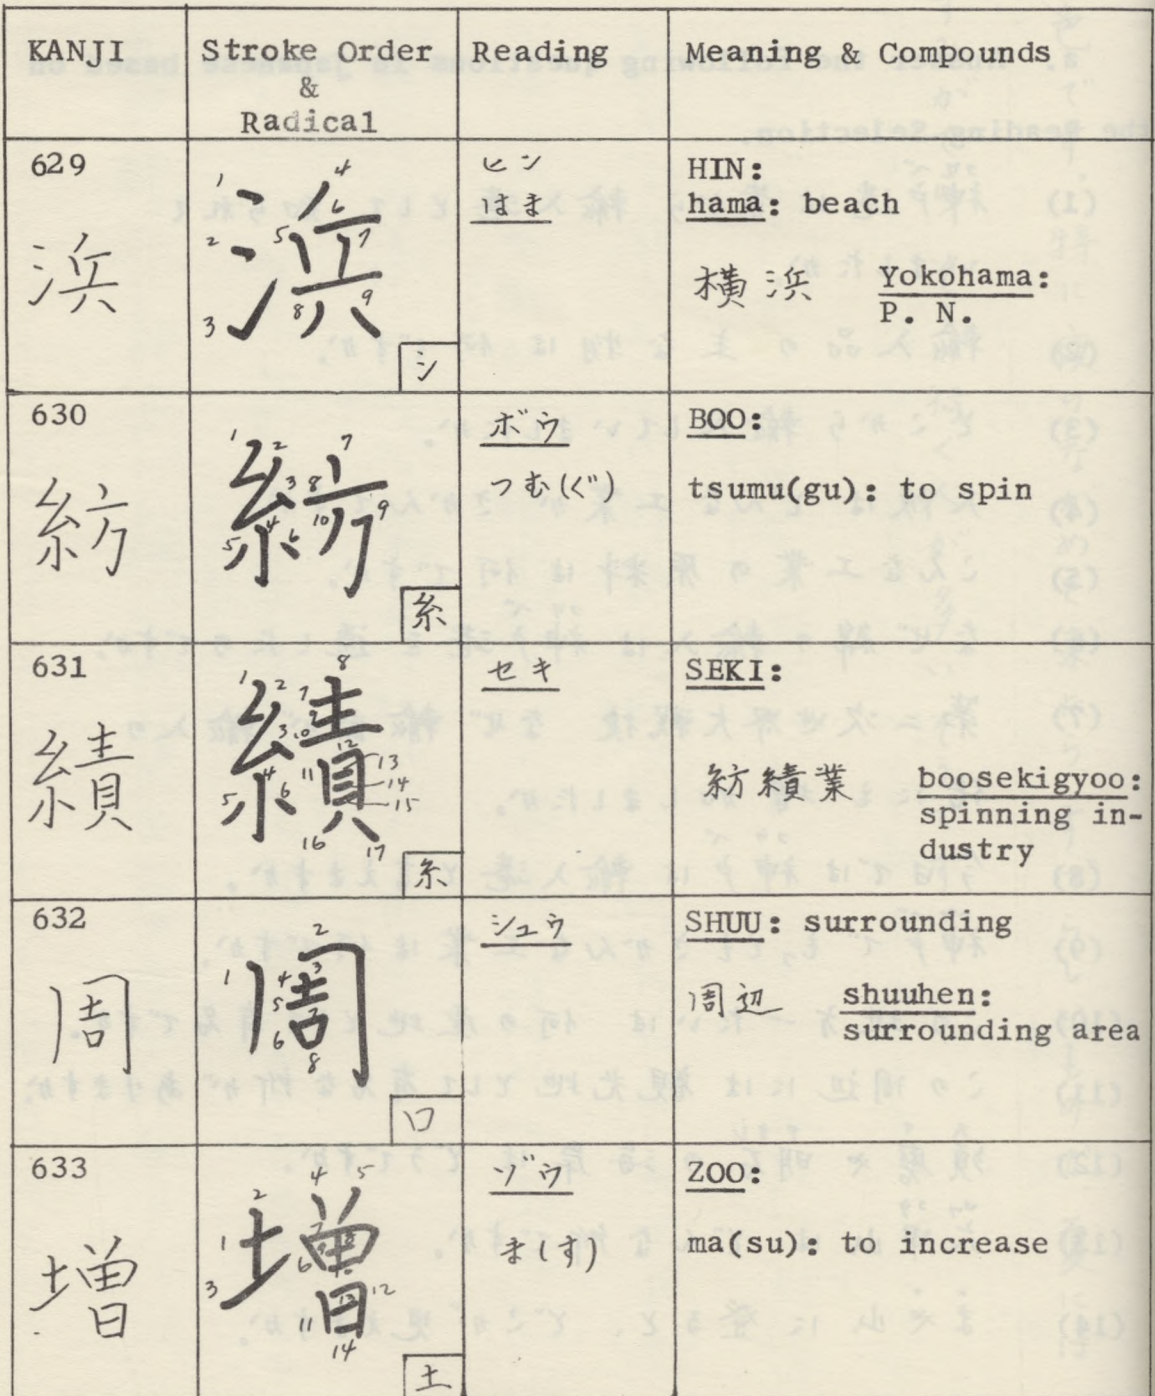 KANJI
Stroke Order
&
Radical
Reading
Meaning & Compounds
629
浜
1 2 3 4 5 6 7 8 9
浜
氵
ヒン
はま
HIN:
hama: beach
横浜 Yokohama:
P. N.
630
紡
1 2 3 4 5 6 7 8 9 10
紡
糸
ボウ
つむ(ぐ)
BOO:
tsumu(gu): to spin
631
績
績
糸
セキ
SEKI:
紡績業 boosekigyoo:
spinning in-
dustry
632
周
周
口
シュウ
SHUU: surrounding
周辺 shuuhen:
surrounding area
633
増
増
土
ゾウ
ま(す)
ZOO:
ma(su): to increase